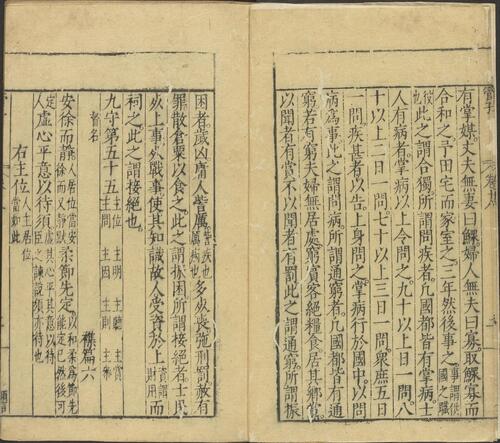 有掌媒丈夫無妻曰鰥婦人無夫曰寡取鰥寡而
合和之予田宅而家室之三年然後事之事謂供國之職
役也此之謂合獨所謂問疾者凡國都皆有掌病士
人有病者掌病以上令問之九十以上日一問八
十以上二日一問七十以上三日一問衆庶五日
一問疾甚者以告上身問之掌病行於國中以問
病爲事此之謂問病所謂通窮者凡國都皆有通
窮若有窮夫婦無居處窮賓客絕糧食居其鄉黨
以聞者有賞不以聞者有罰此之謂通窮所謂振
困者歲凶庸人訾厲訾疾也厲病也多死喪弛刑罰赦有
罪散倉粟以食之此之謂振困所謂接絕者士民
死上事死戰事使其知識故人受資於上資謂財用而
祠之此之謂接絕也
九守第五十五主位 主明 主聽 主賞 主問 主因 主周 主參
督名
雜篇六
安徐而靜人居位當安徐而又靜默柔節先定以和柔爲節先能定已然後可
定人虛心平意以待須虛其心平其意以待臣之諫說須亦待也
右主位主居位當如此